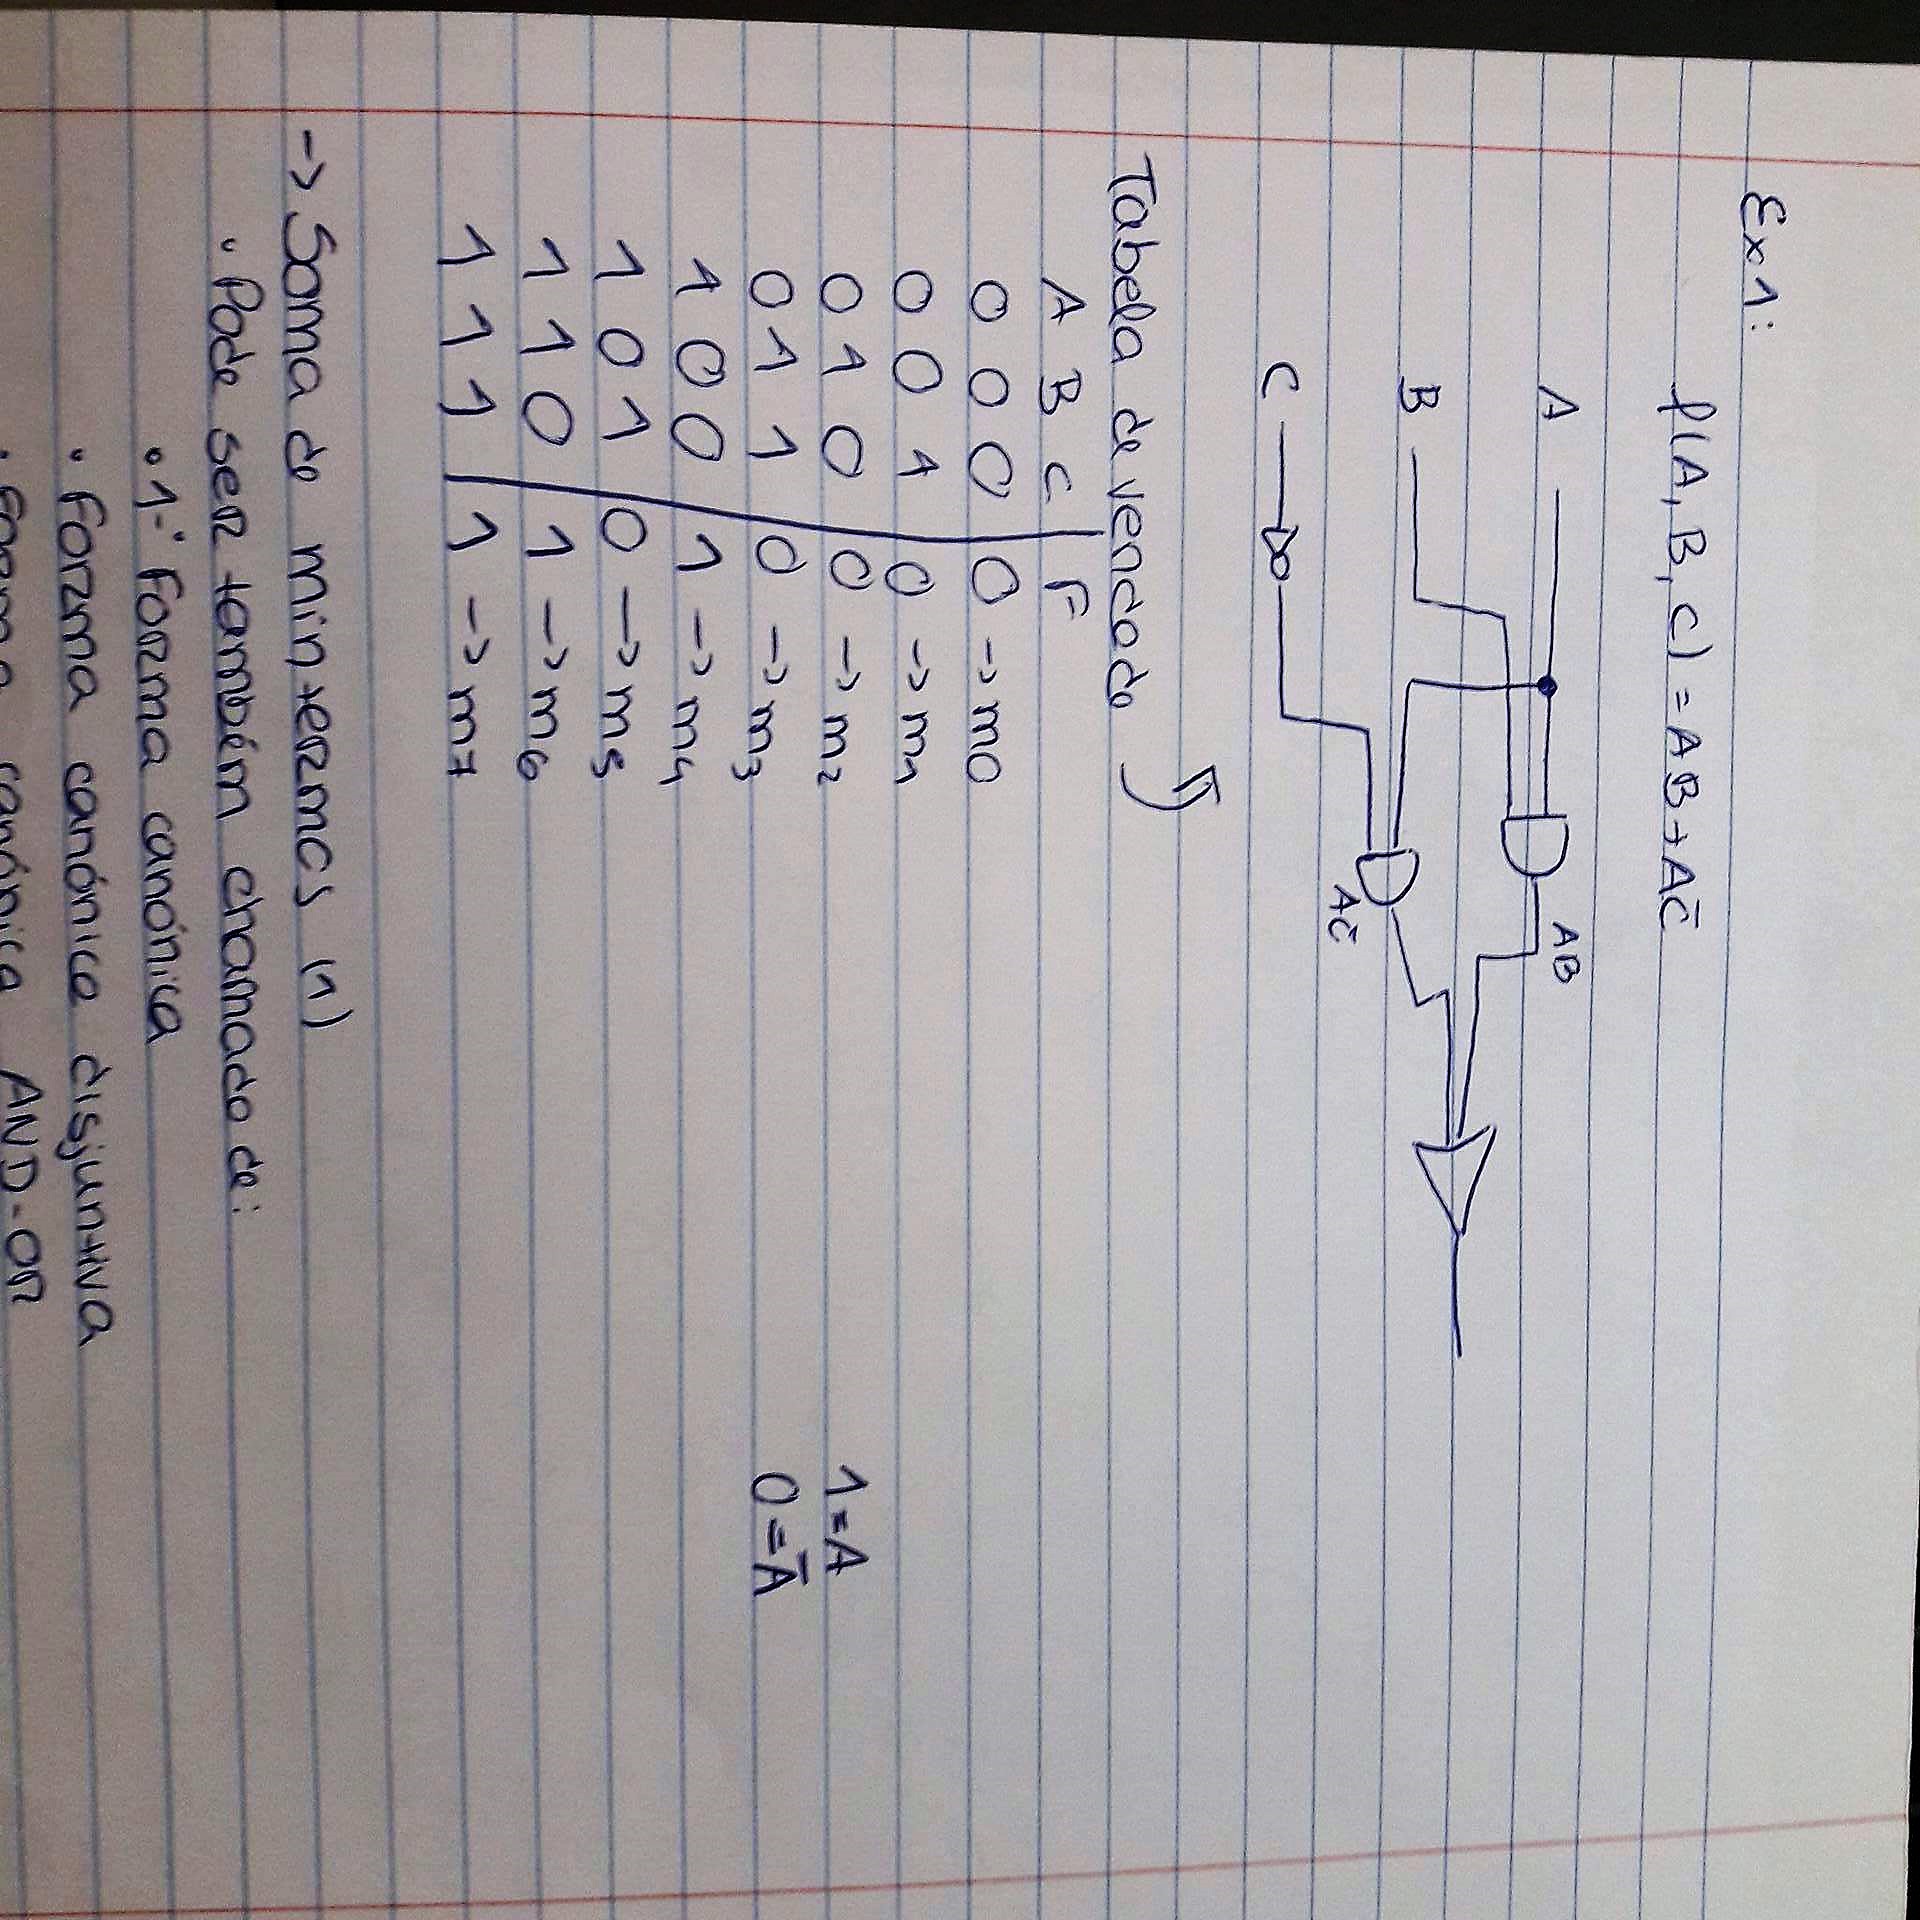 Ex1:
f(A, B, C) = AB + AC̄
A
AB
B
AC̄
C
Tabela de verdade
A B C | F
0 0 0 | 0 -> m0
0 0 1 | 0 -> m1
0 1 0 | 0 -> m2
1 = A
0 1 1 | 0 -> m3
0 = Ā
1 0 0 | 1 -> m4
1 0 1 | 0 -> m5
1 1 0 | 1 -> m6
1 1 1 | 1 -> m7
-> Soma de mintermos (1)
• Pode ser também chamado de:
• 1ª Forma canónica
• Forma canónica disjuntiva
• Forma canónica AND-OR